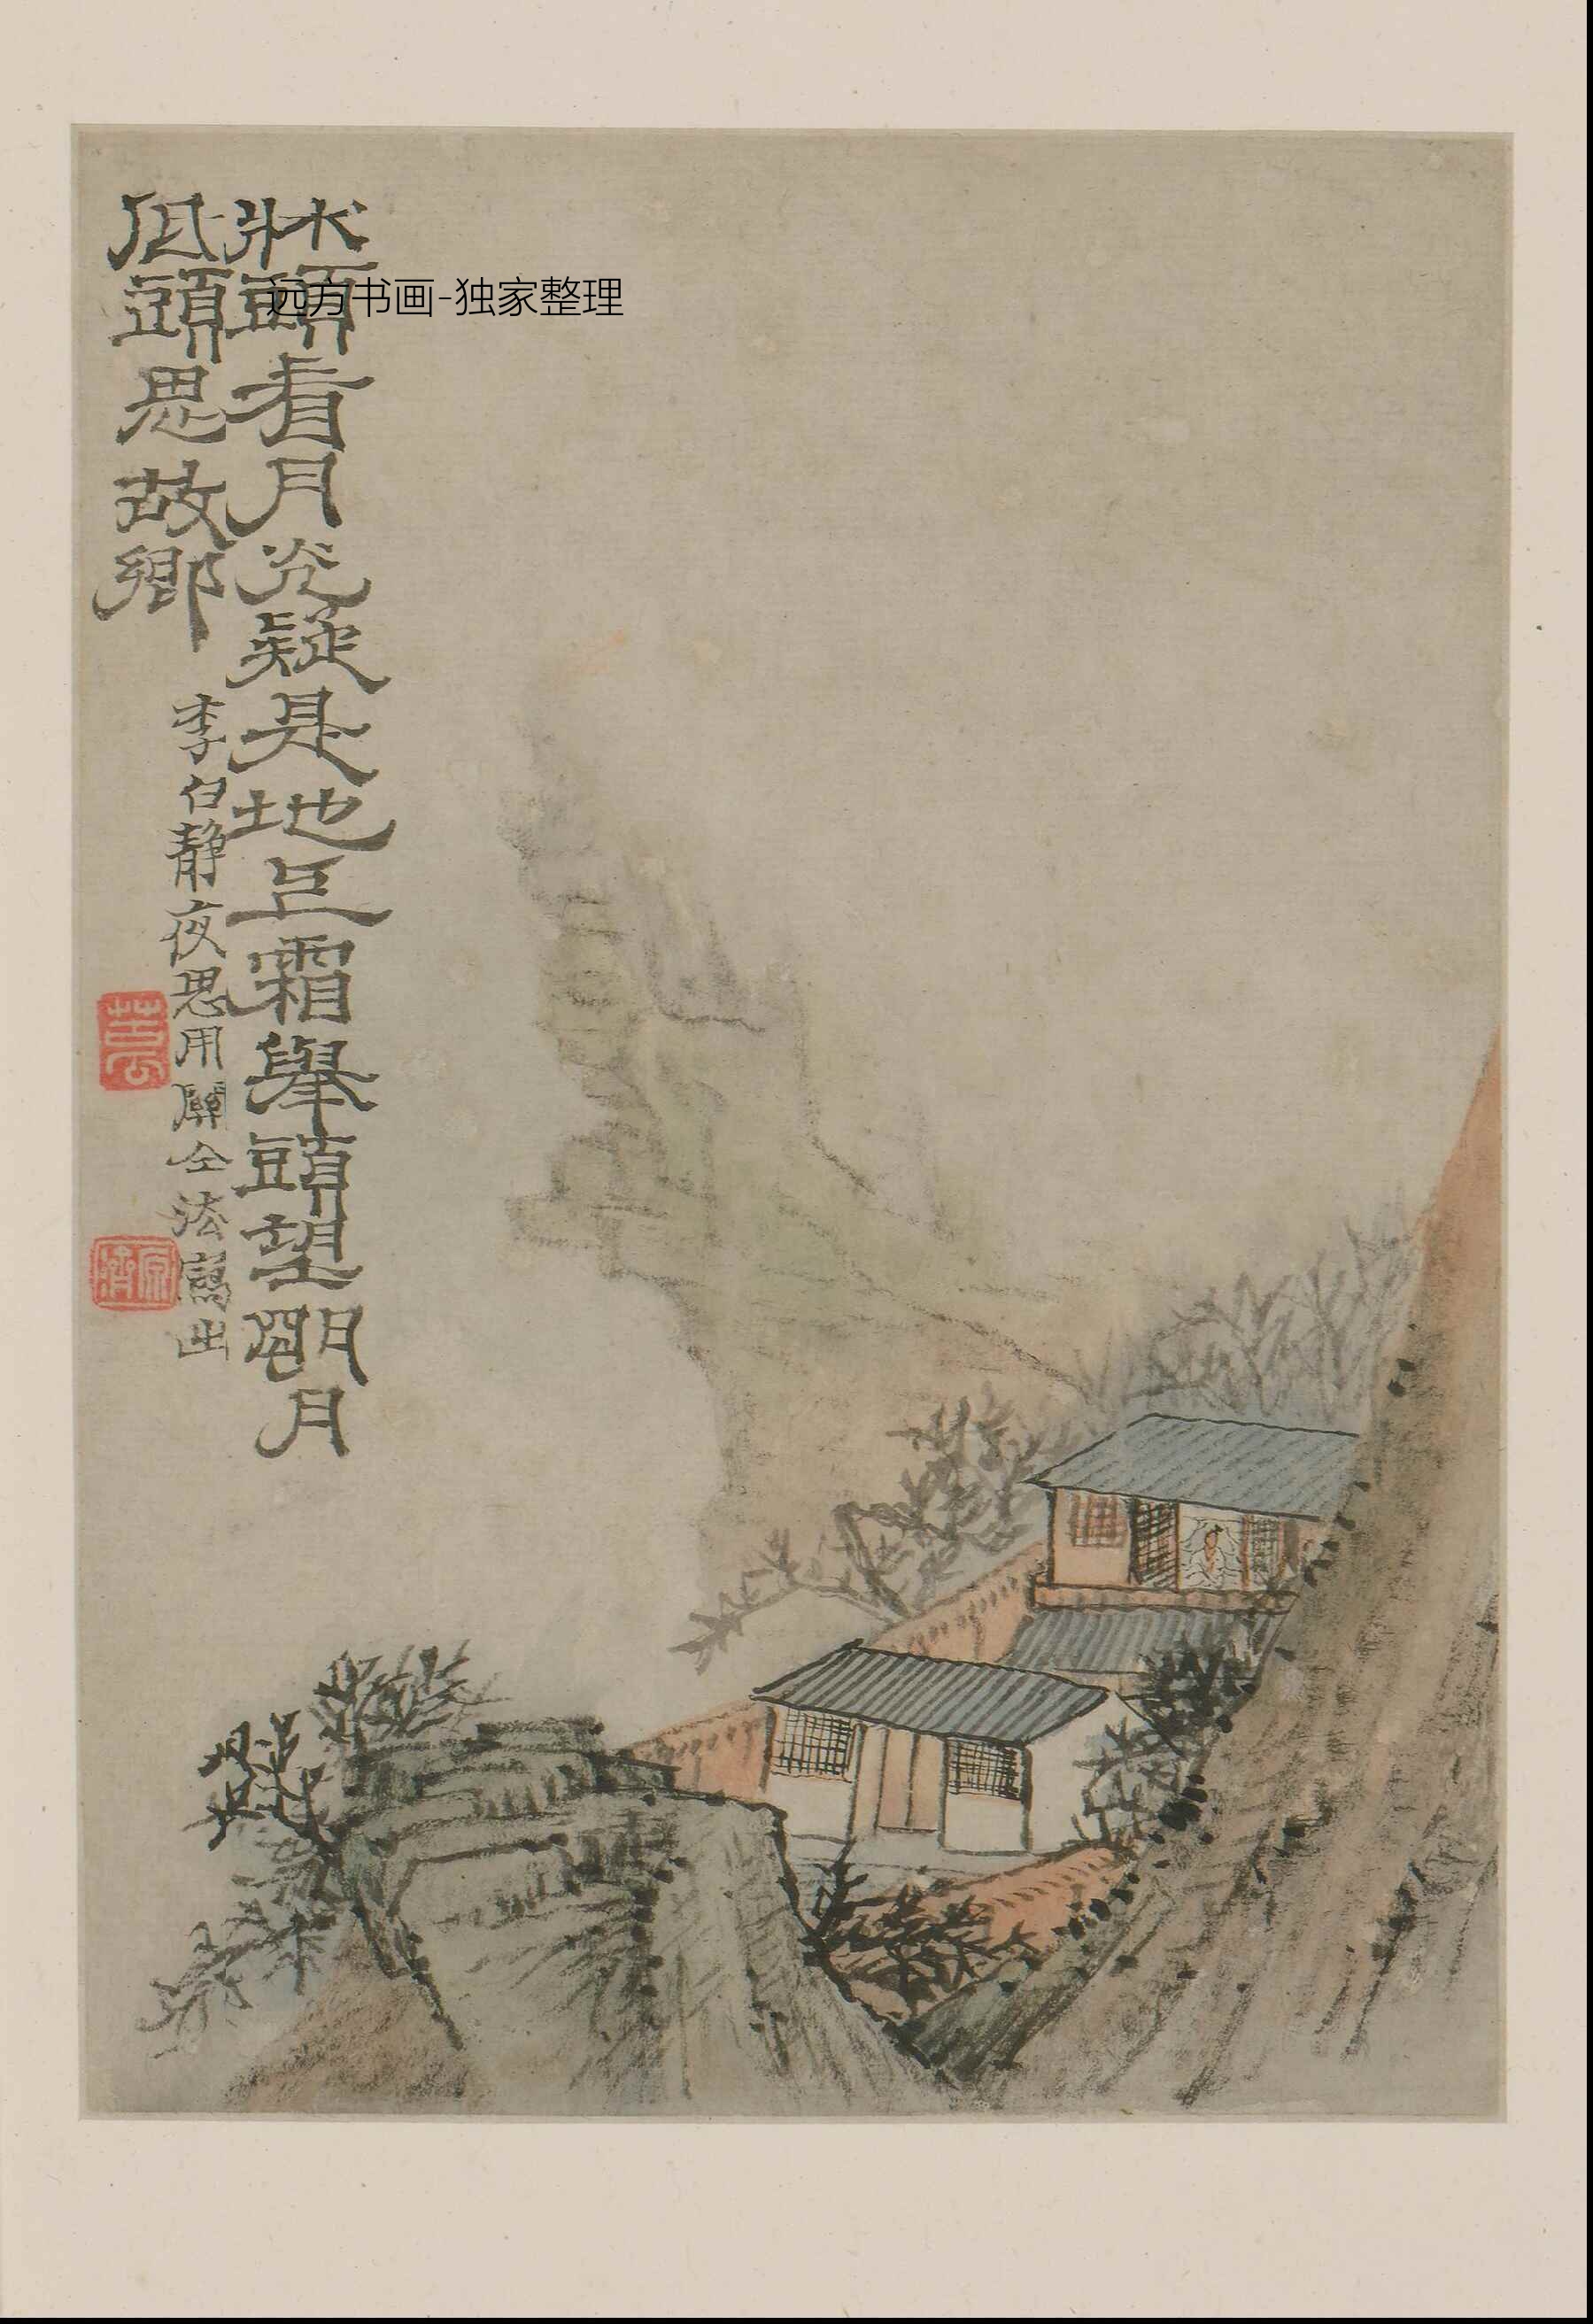 牀頭看月光疑是地上霜舉頭望朙月
低頭思故鄉
李白靜夜思用關仝法寫出
苦瓜
原濟
远方书画-独家整理